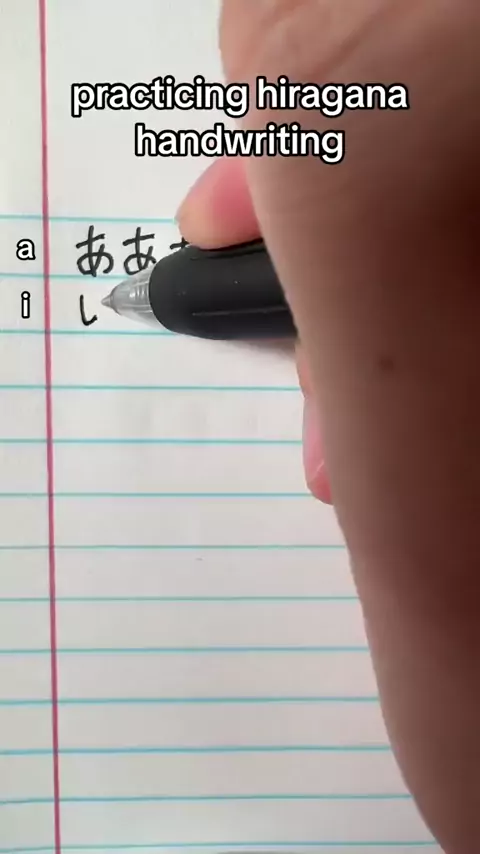 practicing hiragana
handwriting
a ああ
i